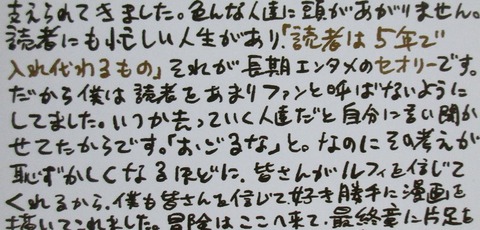 支えられてきました。色んな人達に頭があがりません。
読者にも忙しい人生があり、「読者は5年で
入れ代わるもの」それが長期エンタメのセオリーです。
だから僕は読者をあまりファンと呼ばないように
してました。いつか去っていく人達だと自分に言い聞か
せてたからです。「おごるな」と。なのにその考えが
恥ずかしくなるほどに、皆さんがルフィを信じて
くれるから、僕も皆さんを信じて好き勝手に漫画を
描いてこれました。冒険はここへ来て、最終章に片足を